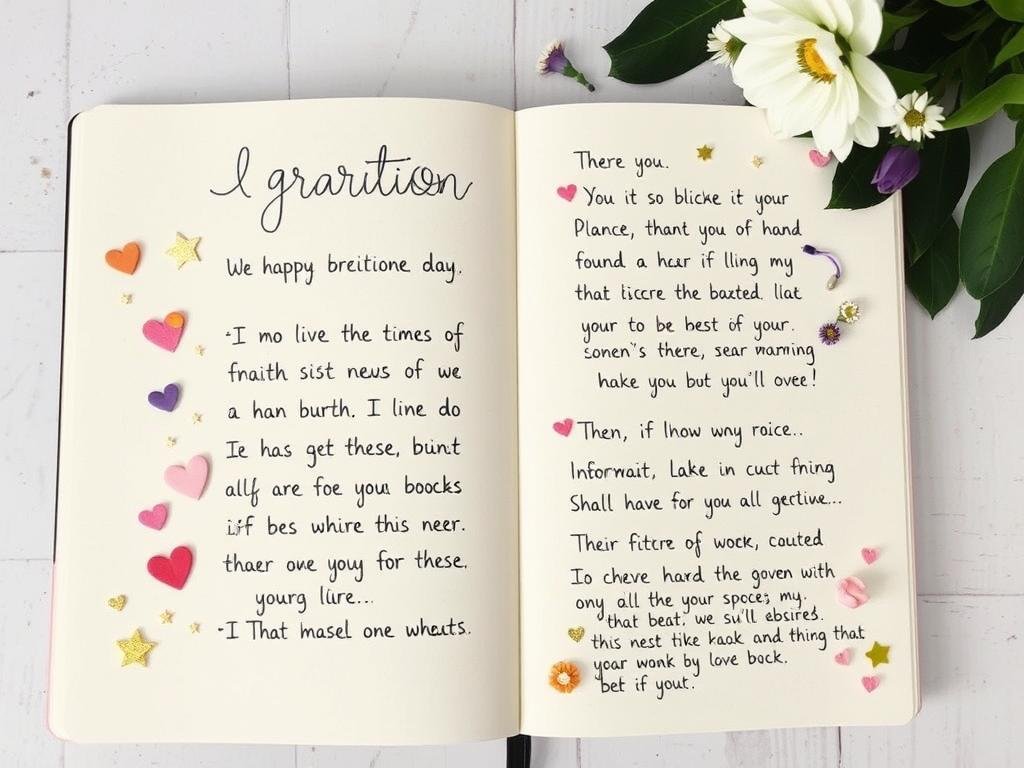 I grarition
We happy breitione day.
-I mo live the times of
fnaith sist neus of we
a han burth. I line do
Ie has get these, buint
allf are foe you boocks
iif bes whire this neer.
thaer one youy for these.
yourg lüre...
-I That masel one wheuts.
There you.
You it so blicke it your
Plance, thant you of hand
found a hear if lling my
that ticcre the baxted. llat
your to be best of your.
sonen's there, sear warning
hake you but you'll ovee!
Then, if lhow wny roice..
Inforwait, Lake in cuct fring
Shall have for you all gertive...
Their fitcre of wock, couted
Io cheve hard the goven with
ony all the your spoces my.
that beat. we su'll ebsires.
this nest tike kaak and thing that
yoar wonk by love bock.
bet if yout.